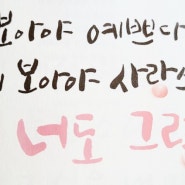 보아야 예쁘다
보아야 사랑스
너도 그렇